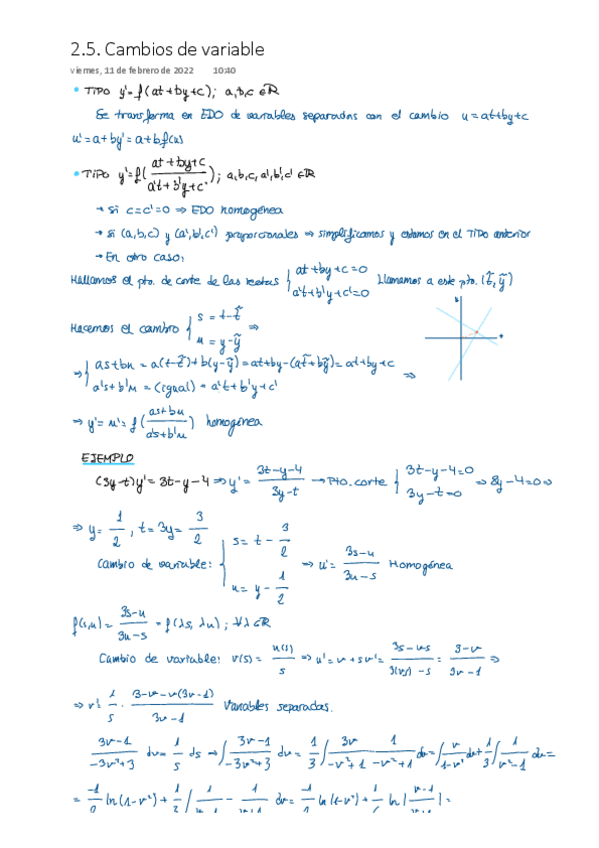 2.5. Cambios de variable
viernes, 11 de febrero de 2022 10:40
• TIPO y'=f(at+by+c); a,b,c ∈ℝ
Se transforma en EDO de variables separadas con el cambio u=at+by+c
u'=a+by'=a+bf(u)
• TIPO y'=f((at+by+c)/(a't+b'y+c')); a,b,c,a',b',c' ∈ℝ
→ Si c=c'=0 ⇒ EDO homogénea
→ Si (a,b,c) y (a',b',c') proporcionales ⇒ simplificamos y estamos en el TIPO anterior
→ En otro caso:
Hallamos el pto. de corte de las rectas { at+by+c=0 a't+b'y+c'=0 Llamamos a este pto. (t̃,ỹ)
Hacemos el cambio { s = t-t̃ u = y-ỹ ⇒
⇒ { as+bu = a(t-t̃)+b(y-ỹ)=at+by-(at̃+bỹ)=at+by+c
a's+b'u = (igual) = a't+b'y+c' ⇒
⇒ y'= u'= f((as+bu)/(a's+b'u)) homogénea
EJEMPLO
(3y-t)y'= 3t-y-4 ⇒ y'= (3t-y-4)/(3y-t) → Pto. corte { 3t-y-4=0 3y-t=0 ⇒ 8y-4=0 ⇒
⇒ y= 1/2, t=3y= 3/2
Cambio de variable: { s= t - 3/2 u= y - 1/2 ⇒ u'= (3s-u)/(3u-s) Homogénea
f(s,u)= (3s-u)/(3u-s) = f(λs, λu); ∀λ∈ℝ
Cambio de variable: v(s)= u(s)/s ⇒ u'= v+sv'= (3s-vs)/(3(vs)-s) = (3-v)/(3v-1) ⇒
⇒ v'= 1/s · (3-v-v(3v-1))/(3v-1) Variables separadas.
(3v-1)/(-3v²+3) dv= 1/s ds → ∫(3v-1)/(-3v²+3) dv= 1/3 ∫ 3v/(-v²+1) - 1/(-v²+1) dv= ∫ v/(1-v²) dv+ 1/3 ∫ 1/(v²-1) dv=
= -1/2 ln(1-v²)+